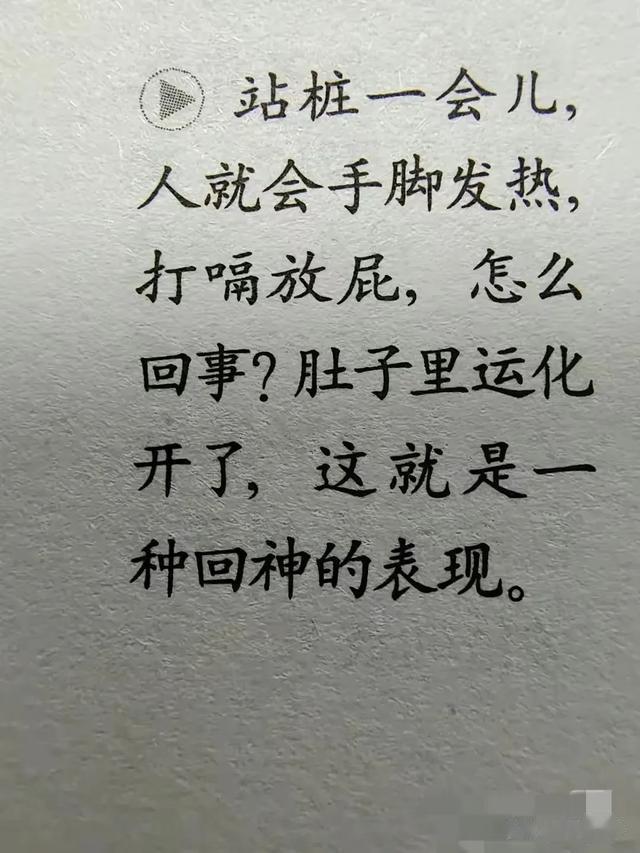 站桩一会儿,
人就会手脚发热,
打嗝放屁，怎么
回事?肚子里运化
开了，这就是一
种回神的表现。